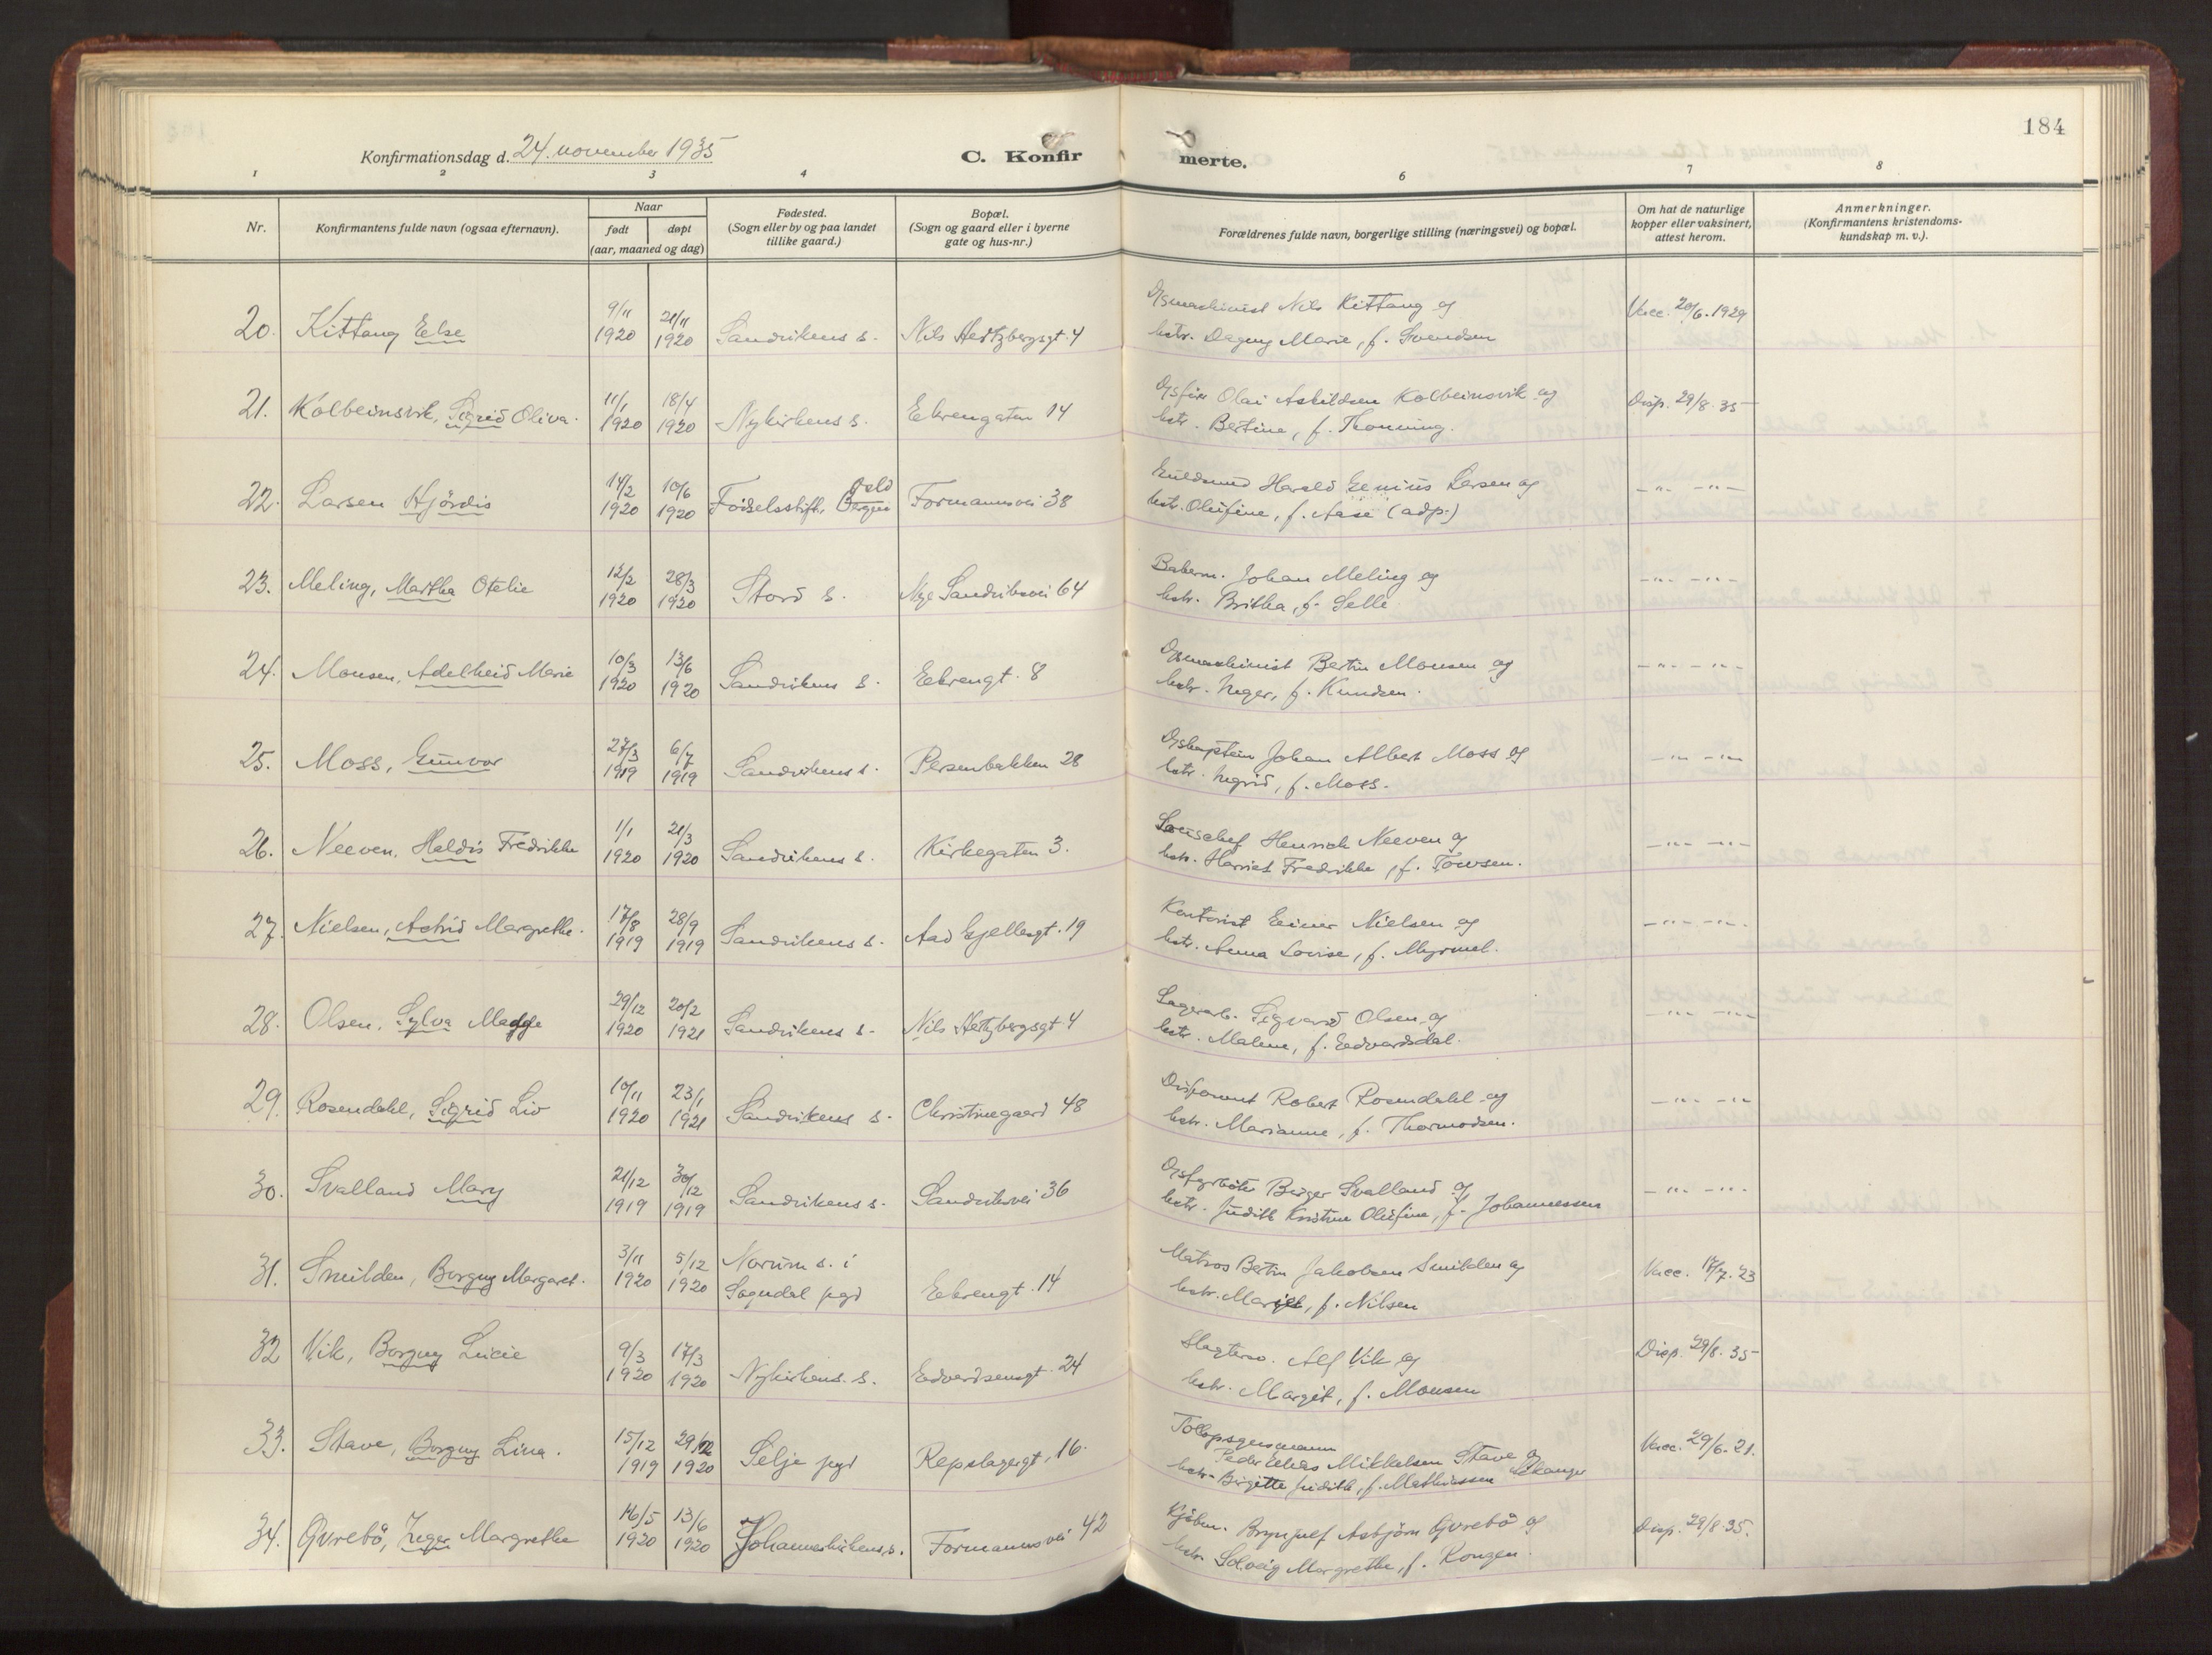 184
Konfirmationsdag d. 24. november 1935
C. Konfir
merte.
1 2 3 4 6 7 8
Nr.
Konfirmantens fulde navn (ogsaa efternavn).
Naar
født døpt
(aar, maaned og dag)
Fødested.
(Sogn eller by og paa landet
tillike gaard.)
Bopæl.
(Sogn og gaard eller i byerne
gate og hus-nr.)
Forældrenes fulde navn, borgerlige stilling (næringsvei) og bopæl.
Om hat de naturlige
kopper eller vaksinert,
attest herom.
Anmerkninger.
(Konfirmantens kristendoms-
kundskap m. v.).
20. Kittang Else 9/11 1920 21/11 1920 Sandvikens s. Nils Hertzbergsgt. 4
Dsmaskinist Nils Kittang og
hstr. Dagny Marie, f. Svendsen
Vacc. 20/6. 1929
21. Kolbeinsvik, Sigrid Oliva. 11/1 1920 18/4 1920 Nykirkens s. Ekrengaten 14
Olai Askildsen Kolbeinsvik og
hstr. Bertine, f. Thonning.
Disp. 29/8. 35
22. Larsen Hjördis 14/2 1920 10/6 1920 Födselsstift. Bergen Formannsvei 38
Guldsmed Harald Genius Larsen og
hstr. Olufine, f. Aase (adp.)
-"- -"-
23. Meling, Martha Otelie 12/2 1920 28/3 1920 Stord s. Nye Sandviksvei 64
Bakerm. Johan Meling og
hstr. Britha, f. Selle
-"- -"-
24. Monsen, Adelheid Marie 10/3 1920 13/6 1920 Sandvikens s. Ekrengt. 8
Dsmaskinist Bertin Monsen og
hstr. Inger, f. Knudsen.
-"- -"-
25. Moss, Gunvor 27/3 1919 6/7 1919 Sandvikens s. Persenbakken 28
Dskaptein Johan Albert Moss og
hstr. Ingrid, f. Moss.
-"- -"-
26. Neeven, Haldis Fredrikke 1/1 1920 21/3 1920 Sandvikens s. Kirkegaten 3.
Henrich Neeven og
hstr. Harriet Fredrikke, f. Towsen.
-"- -"-
27. Nielsen, Astrid Margrethe. 17/8 1919 28/9 1919 Sandvikens s. Aad Gjellesgt. 19
Kontorist Einar Nielsen og
hstr. Anna Lovise, f. Myrmel.
-"- -"-
28. Olsen, Sylva Madge 29/12 1920 20/2 1921 Sandvikens s. Nils Hertzbergsgt 4
Lagerarb. Sigvard Olsen og
hstr. Malene, f. Edvardsdal.
-"- -"-
29. Rosendahl, Sigrid Liv 10/11 1920 23/1 1921 Sandvikens s. Christinegaard 48
Disponent Robert Rosendahl og
hstr. Marianne, f. Thormodsen.
-"- -"-
30. Svalland Mary 21/12 1919 30/12 1919 Sandvikens s. Sandviksvei 36
Dsfyrböter Birger Svalland og
hstr. Judith Kristine Olufine, f. Johannessen
-"- -"-
31. Smilden, Borgny Margaret. 3/11 1920 5/12 1920 Norum s. i
Sogndal pgd Ekrengt. 14
Matros Bertin Jakobsen Smilden og
hstr. f. Nilsen
Vacc. 17/7. 23
32 Vik, Borgny Lucie 9/3 1920 17/3 1920 Nykirkens s. Edvardsensgt. 24
Alf Vik og
hstr. Margit, f. Monsen
Disp. 29/8. 35
33. Stave, Borgny Lina. 15/12 1919 29/12 1920 Selje pgd Repslagergt. 16.
Peder Elias Mikkelsen Stave og
hstr. Birgitte Judith, f. Mathiassen
Vacc. 29/6. 21.
34. Qvrebö, Inger Margrethe 16/5 1920 13/6 1920 Johanneskirkens s. Formannsvei 42
Kjöbm. Brynjulf Asbjörn Qvrebö og
hstr. Solveig Margrethe, f. Rongen.
Disp. 29/8. 35.